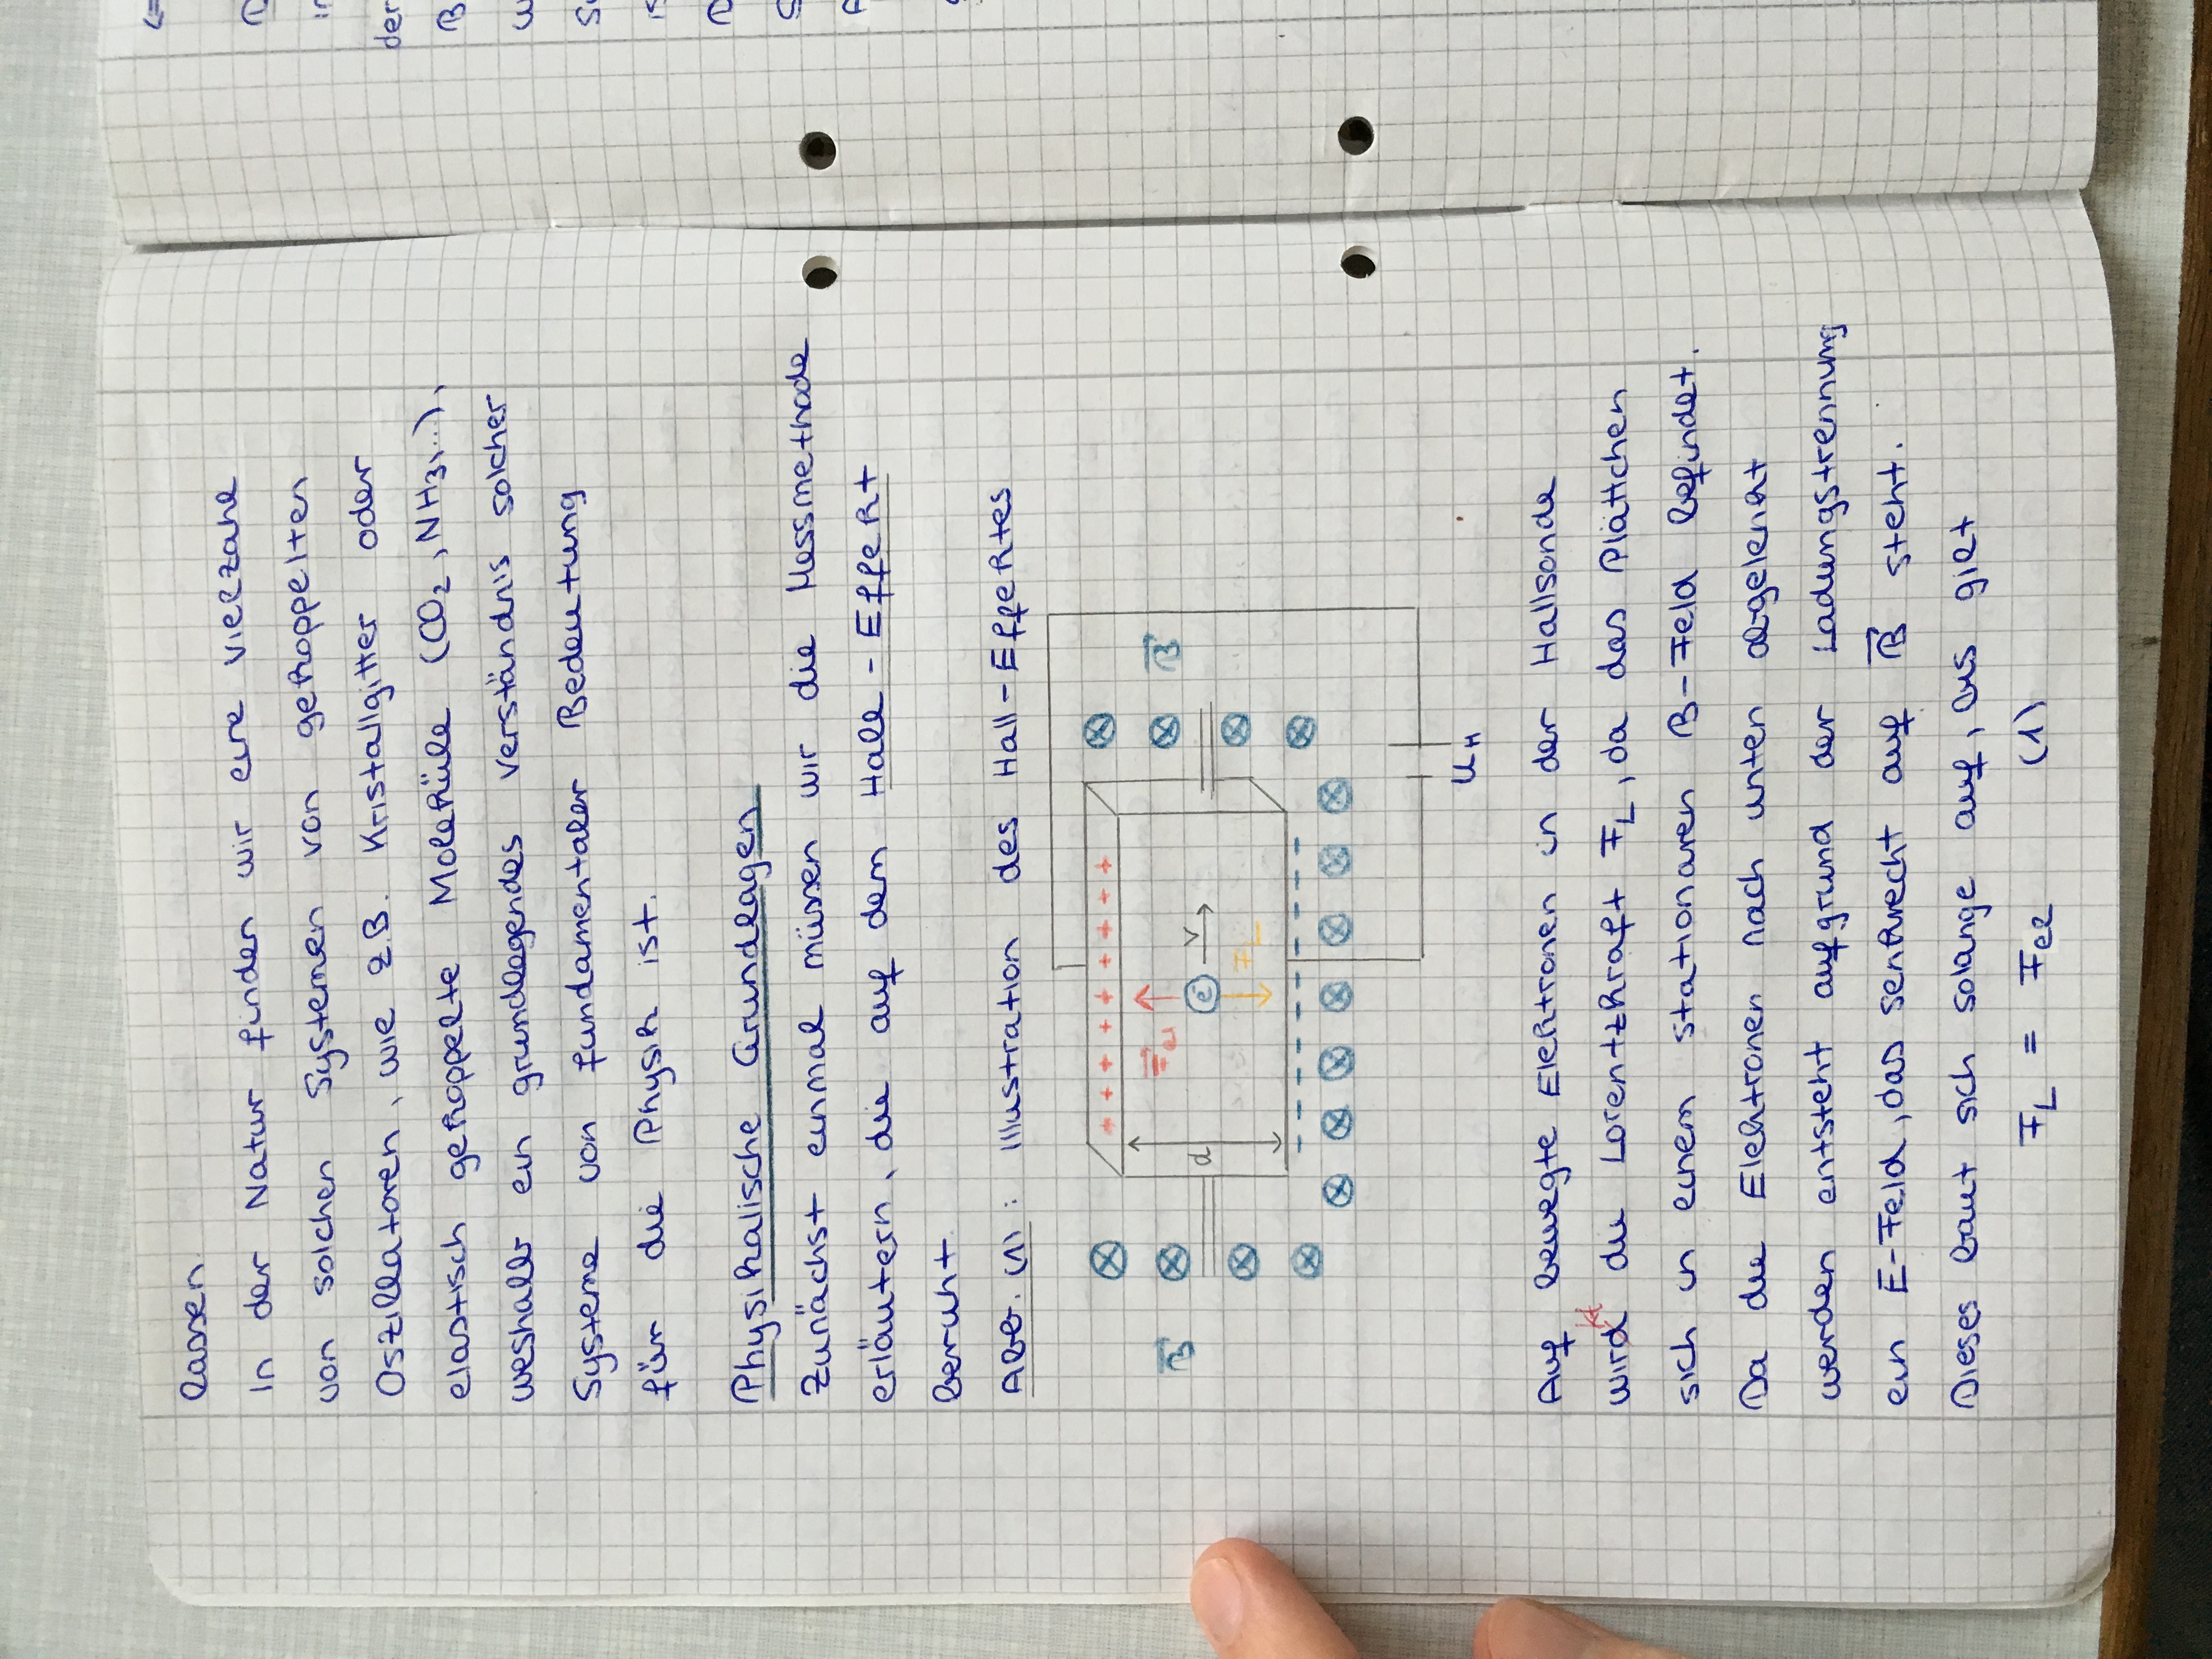 lassen.
In der Natur finden wir eine Vielzahl
von solchen Systemen von gekoppelten
Oszillatoren, wie z.B. Kristallgitter oder
elastisch gekoppelte Moleküle (CO₂, NH₃,...),
weshalb ein grundlegendes Verständnis solcher
Systeme von fundamentaler Bedeutung
für die Physik ist.
Physikalische Grundlagen
Zunächst einmal müssen wir die Messmethode
erläutern, die auf dem Hall-Effekt
beruht.
Abb. (1): Illustration des Hall-Effektes
+ + + + + + + + +
B⃗ d F⃗el e⁻ v B⃗
F_L
- - - - - - - - - -
U_H
Auf bewegte Elektronen in der Hallsonde
wirkt die Lorentzkraft F_L, da das Plättchen
sich in einem stationären B-Feld befindet.
Da die Elektronen nach unten abgelenkt
werden entsteht aufgrund der Ladungstrennung
ein E-Feld, das senkrecht auf B⃗ steht.
Dieses baut sich solange auf, bis gilt
F_L = F_el (1)
der